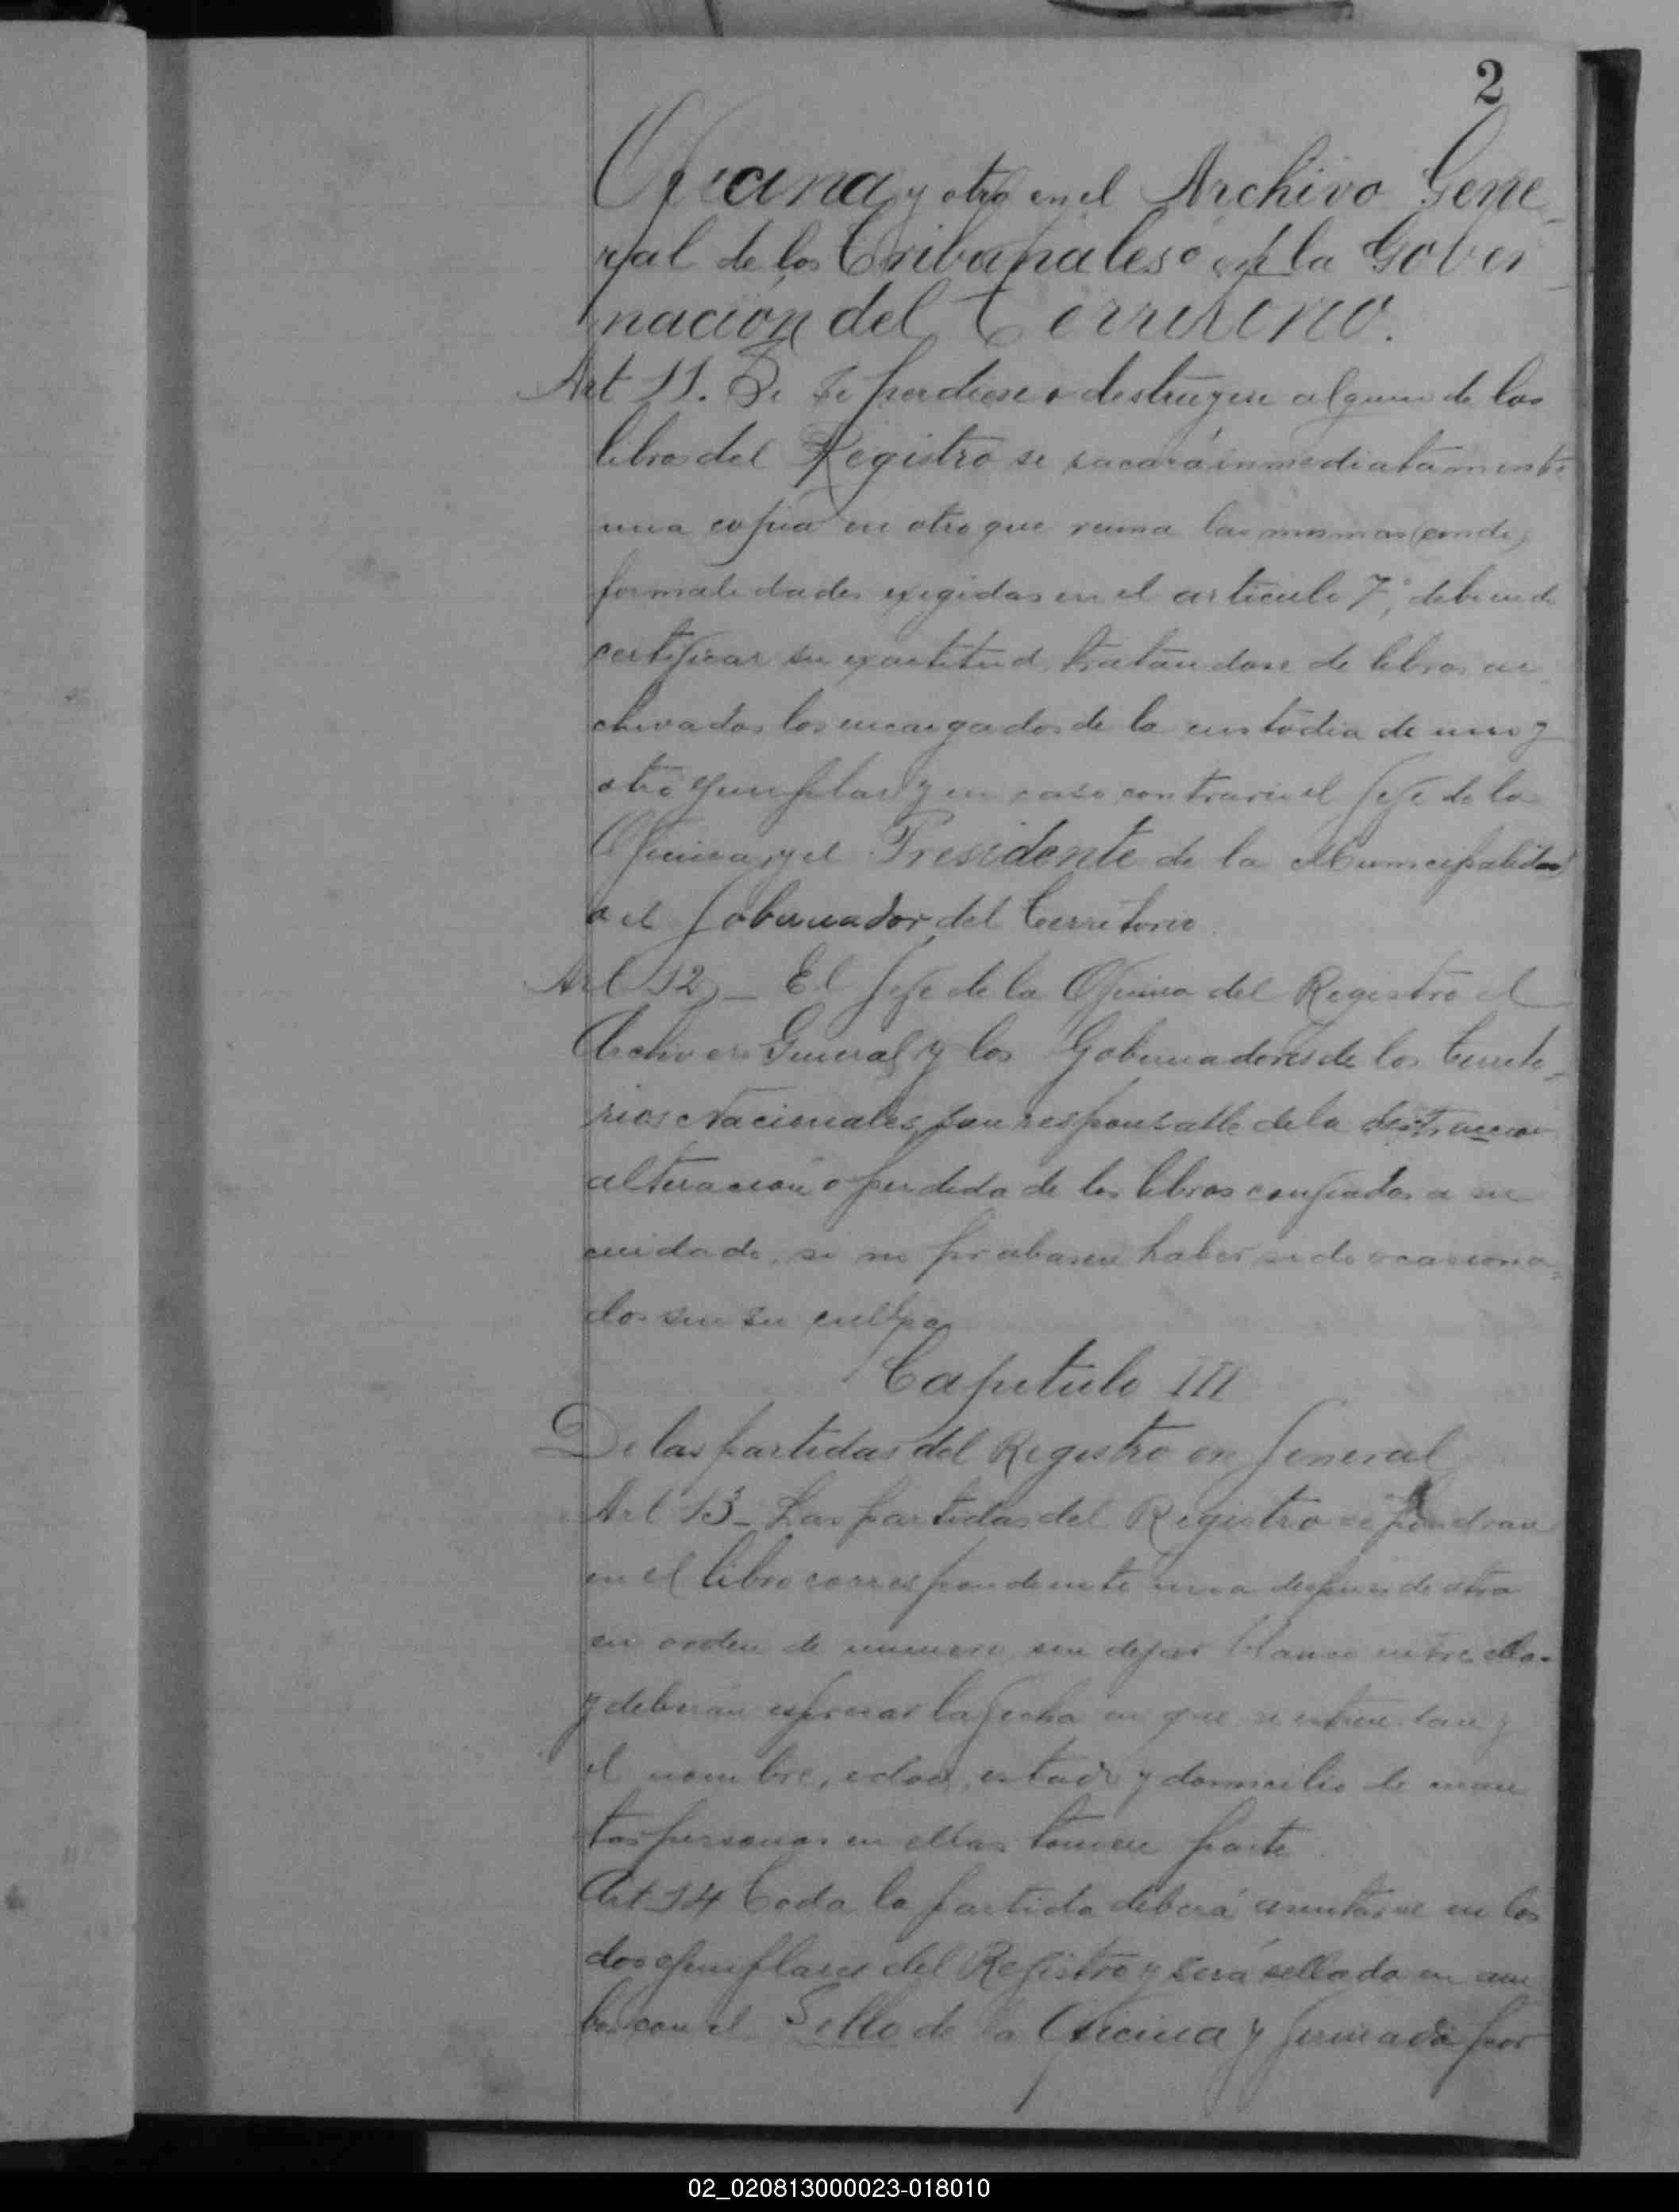 2
Oficina y otro en el Archivo Gene-
ral de los Tribunales o en la Gober-
nación del Territorio.
Art 11. Si se perdiese o destruyese alguno de los
libros del Registro se sacará inmediatamente
una copia en otro que reuna las mismas (condi)
formalidades exigidas en el articulo 7°, debiendo
certificar su exactitud, tratandose de libros ar
chivados los encargados de la custodia de uno y
otro ejemplar y en caso contrario el Jefe de la
Oficina, y el Presidente de la Municipalidad
o el Gobernador del Territorio.
Art 12 - El Jefe de la Oficina del Registro el
Archivero General y los Gobernadores de los territo-
rios Nacionales, son responsable de la destruccion
alteracion o perdida de los libros confiados a su
cuidado, si no probasen haber sido ocasiona-
dos sin su culpa
Capitulo III
De las partidas del Registro en General
Art 13 - Las partidas del Registro se pondran
en el libro correspondiente una despues de otra
en orden de numero sin dejar blanco entre ellas
y deberán espresar la fecha en que se estienden y
el nombre, edad, estado y domicilio de cuan
tas personas en ellas tomen parte.
Art 14 Toda la partida deberá asentarse en los
dos ejemplares del Registro y será sellada en am
bos con el Sello de la Oficina y firmada por
02_020813000023-018010